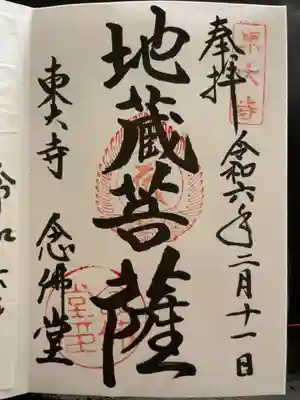 奉拝
東大寺
令和六年二月十一日
地蔵菩薩
東大寺
念佛堂